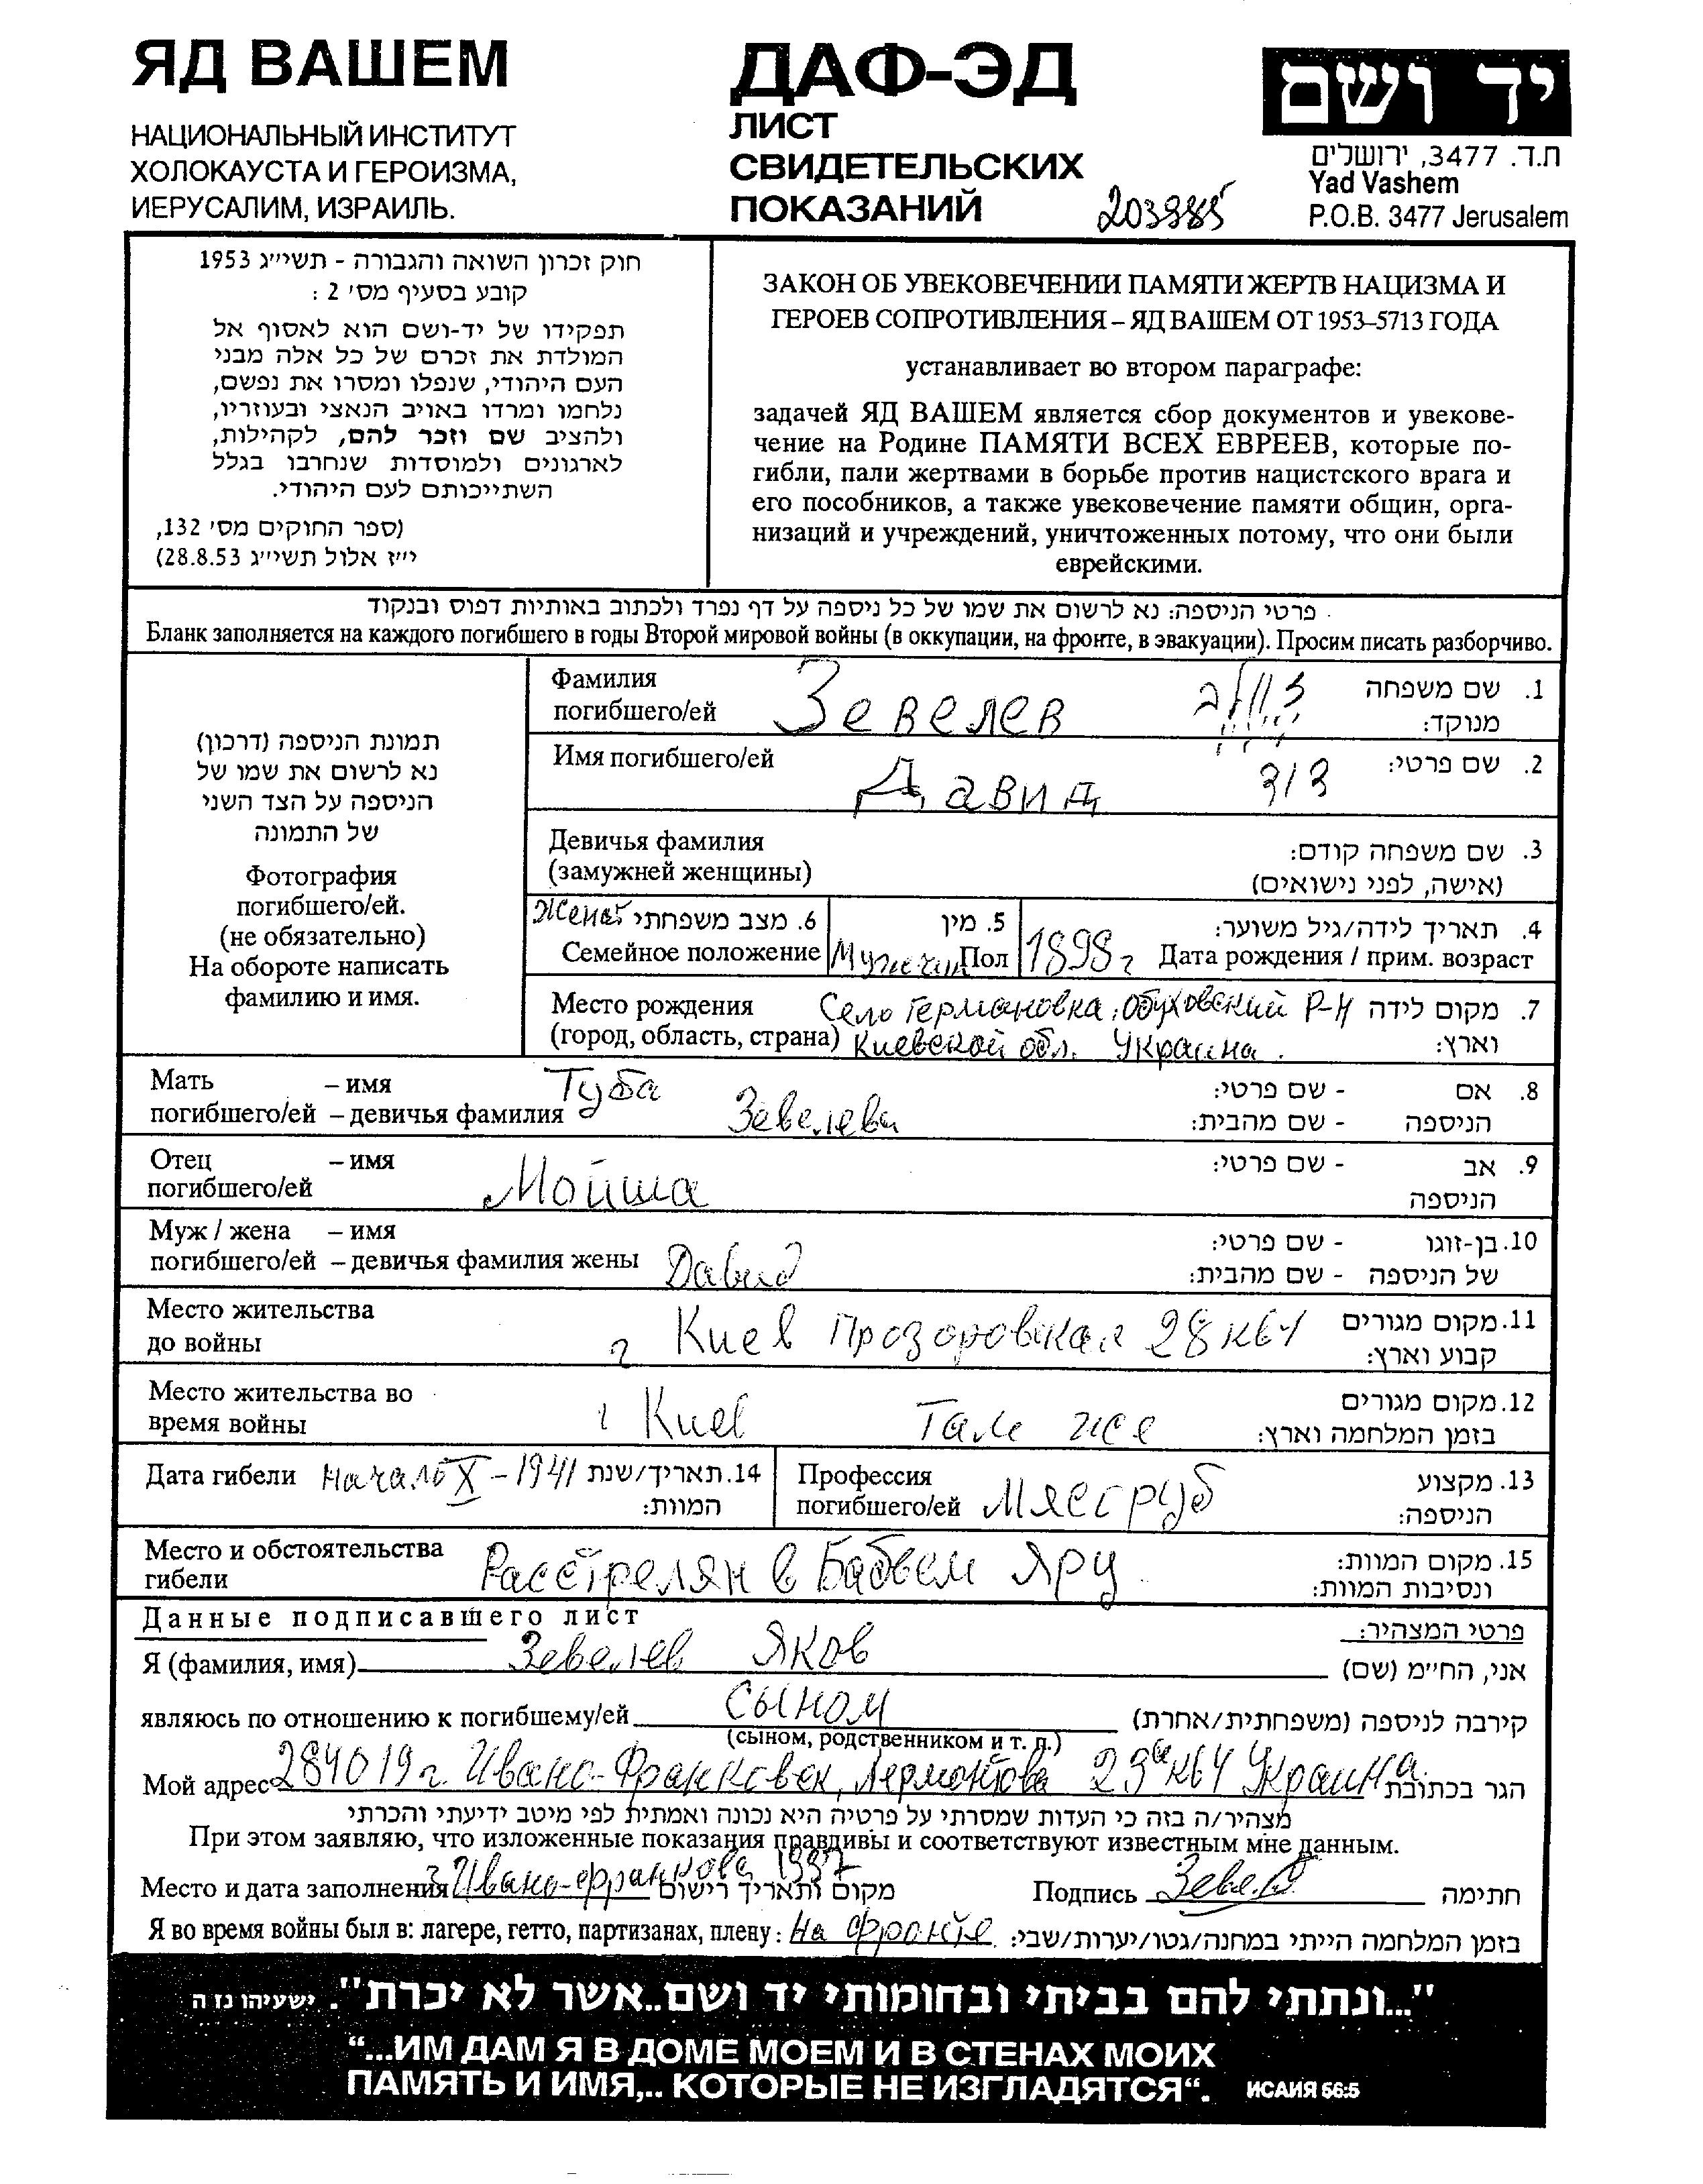 ЯД ВАШЕМ
НАЦИОНАЛЬНЫЙ ИНСТИТУТ
ХОЛОКАУСТА И ГЕРОИЗМА,
ИЕРУСАЛИМ, ИЗРАИЛЬ.
ДАФ-ЭД
ЛИСТ
СВИДЕТЕЛЬСКИХ
ПОКАЗАНИЙ
203985
יד ושם
ת.ד. 3477, ירושלים
Yad Vashem
P.O.B. 3477 Jerusalem
חוק זכרון השואה והגבורה - תשי״ג 1953
קובע בסעיף מס׳ 2 :
תפקידו של יד-ושם הוא לאסוף אל
המולדת את זכרם של כל אלה מבני
העם היהודי, שנפלו ומסרו את נפשם,
נלחמו ומרדו באויב הנאצי ובעוזריו,
ולהציב שם וזכר להם, לקהילות,
לארגונים ולמוסדות שנחרבו בגלל
השתייכותם לעם היהודי.
(ספר החוקים מס׳ 132,
י״ז אלול תשי״ג 28.8.53)
ЗАКОН ОБ УВЕКОВЕЧЕНИИ ПАМЯТИ ЖЕРТВ НАЦИЗМА И
ГЕРОЕВ СОПРОТИВЛЕНИЯ – ЯД ВАШЕМ ОТ 1953–5713 ГОДА
устанавливает во втором параграфе:
задачей ЯД ВАШЕМ является сбор документов и увекове-
чение на Родине ПАМЯТИ ВСЕХ ЕВРЕЕВ, которые по-
гибли, пали жертвами в борьбе против нацистского врага и
его пособников, а также увековечение памяти общин, орга-
низаций и учреждений, уничтоженных потому, что они были
еврейскими.
פרטי הניספה: נא לרשום את שמו של כל ניספה על דף נפרד ולכתוב באותיות דפוס ובנקוד
Бланк заполняется на каждого погибшего в годы Второй мировой войны (в оккупации, на фронте, в эвакуации). Просим писать разборчиво.
תמונת הניספה (דרכון)
נא לרשום את שמו של
הניספה על הצד השני
של התמונה
Фотография
погибшего/ей.
(не обязательно)
На обороте написать
фамилию и имя.
Фамилия
погибшего/ей Зевелев
1. שם משפחה
מנוקד:
Имя погибшего/ей Давид דוד 2. שם פרטי:
Девичья фамилия
(замужней женщины)
3. שם משפחה קודם:
(אישה, לפני נישואים)
Женат 6. מצב משפחתי
Семейное положение
5. מין
Пол
4. תאריך לידה/גיל משוער:
1898 г Дата рождения / прим. возраст
Место рождения Село Германовка, Обуховский р-н 7. מקום לידה
(город, область, страна) Киевской обл. Украина. וארץ:
Мать – имя Туба 8. אם - שם פרטי:
погибшего/ей – девичья фамилия Зевелева הניספה - שם מהבית:
Отец – имя 9. אב - שם פרטי:
погибшего/ей Мойша הניספה
Муж / жена – имя 10. בן-זוגו - שם פרטי:
погибшего/ей – девичья фамилия жены Давид של הניספה - שם מהבית:
Место жительства 11. מקום מגורים
до войны г Киев Прозоровская 28 кв 4 קבוע וארץ:
Место жительства во 12. מקום מגורים
время войны г Киев Там же בזמן המלחמה וארץ:
Дата гибели Начало X – 1941 14. תאריך/שנת
המוות:
Профессия 13. מקצוע
погибшего/ей Мясоруб הניספה:
Место и обстоятельства 15. מקום המוות:
гибели Расстрелян в Бабьем Яру ונסיבות המוות:
Данные подписавшего лист פרטי המצהיר:
Я (фамилия, имя) Зевелев Яков אני, החי״מ (שם)
являюсь по отношению к погибшему/ей Сыном קירבה לניספה (משפחתית/אחרת)
(сыном, родственником и т. п.)
Мой адрес 284019 г. Ивано-Франковск, Лермонтова 23а кв 4 Украина הגר בכתובת
מצהיר/ה בזה כי העדות שמסרתי על פרטיה היא נכונה ואמתית לפי מיטב ידיעתי והכרתי
При этом заявляю, что изложенные показания правдивы и соответствуют известным мне данным.
Место и дата заполнения 1997 מקום ותאריך רישום Подпись חתימה
Я во время войны был в: лагере, гетто, партизанах, плену: На фронте בזמן המלחמה הייתי במחנה/גטו/יערות/שבי:
"...ונתתי להם בביתי ובחומותי יד ושם..אשר לא יכרת". ישעיהו נו ה
“...ИМ ДАМ Я В ДОМЕ МОЕМ И В СТЕНАХ МОИХ
ПАМЯТЬ И ИМЯ,.. КОТОРЫЕ НЕ ИЗГЛАДЯТСЯ“. ИСАИЯ 56:5